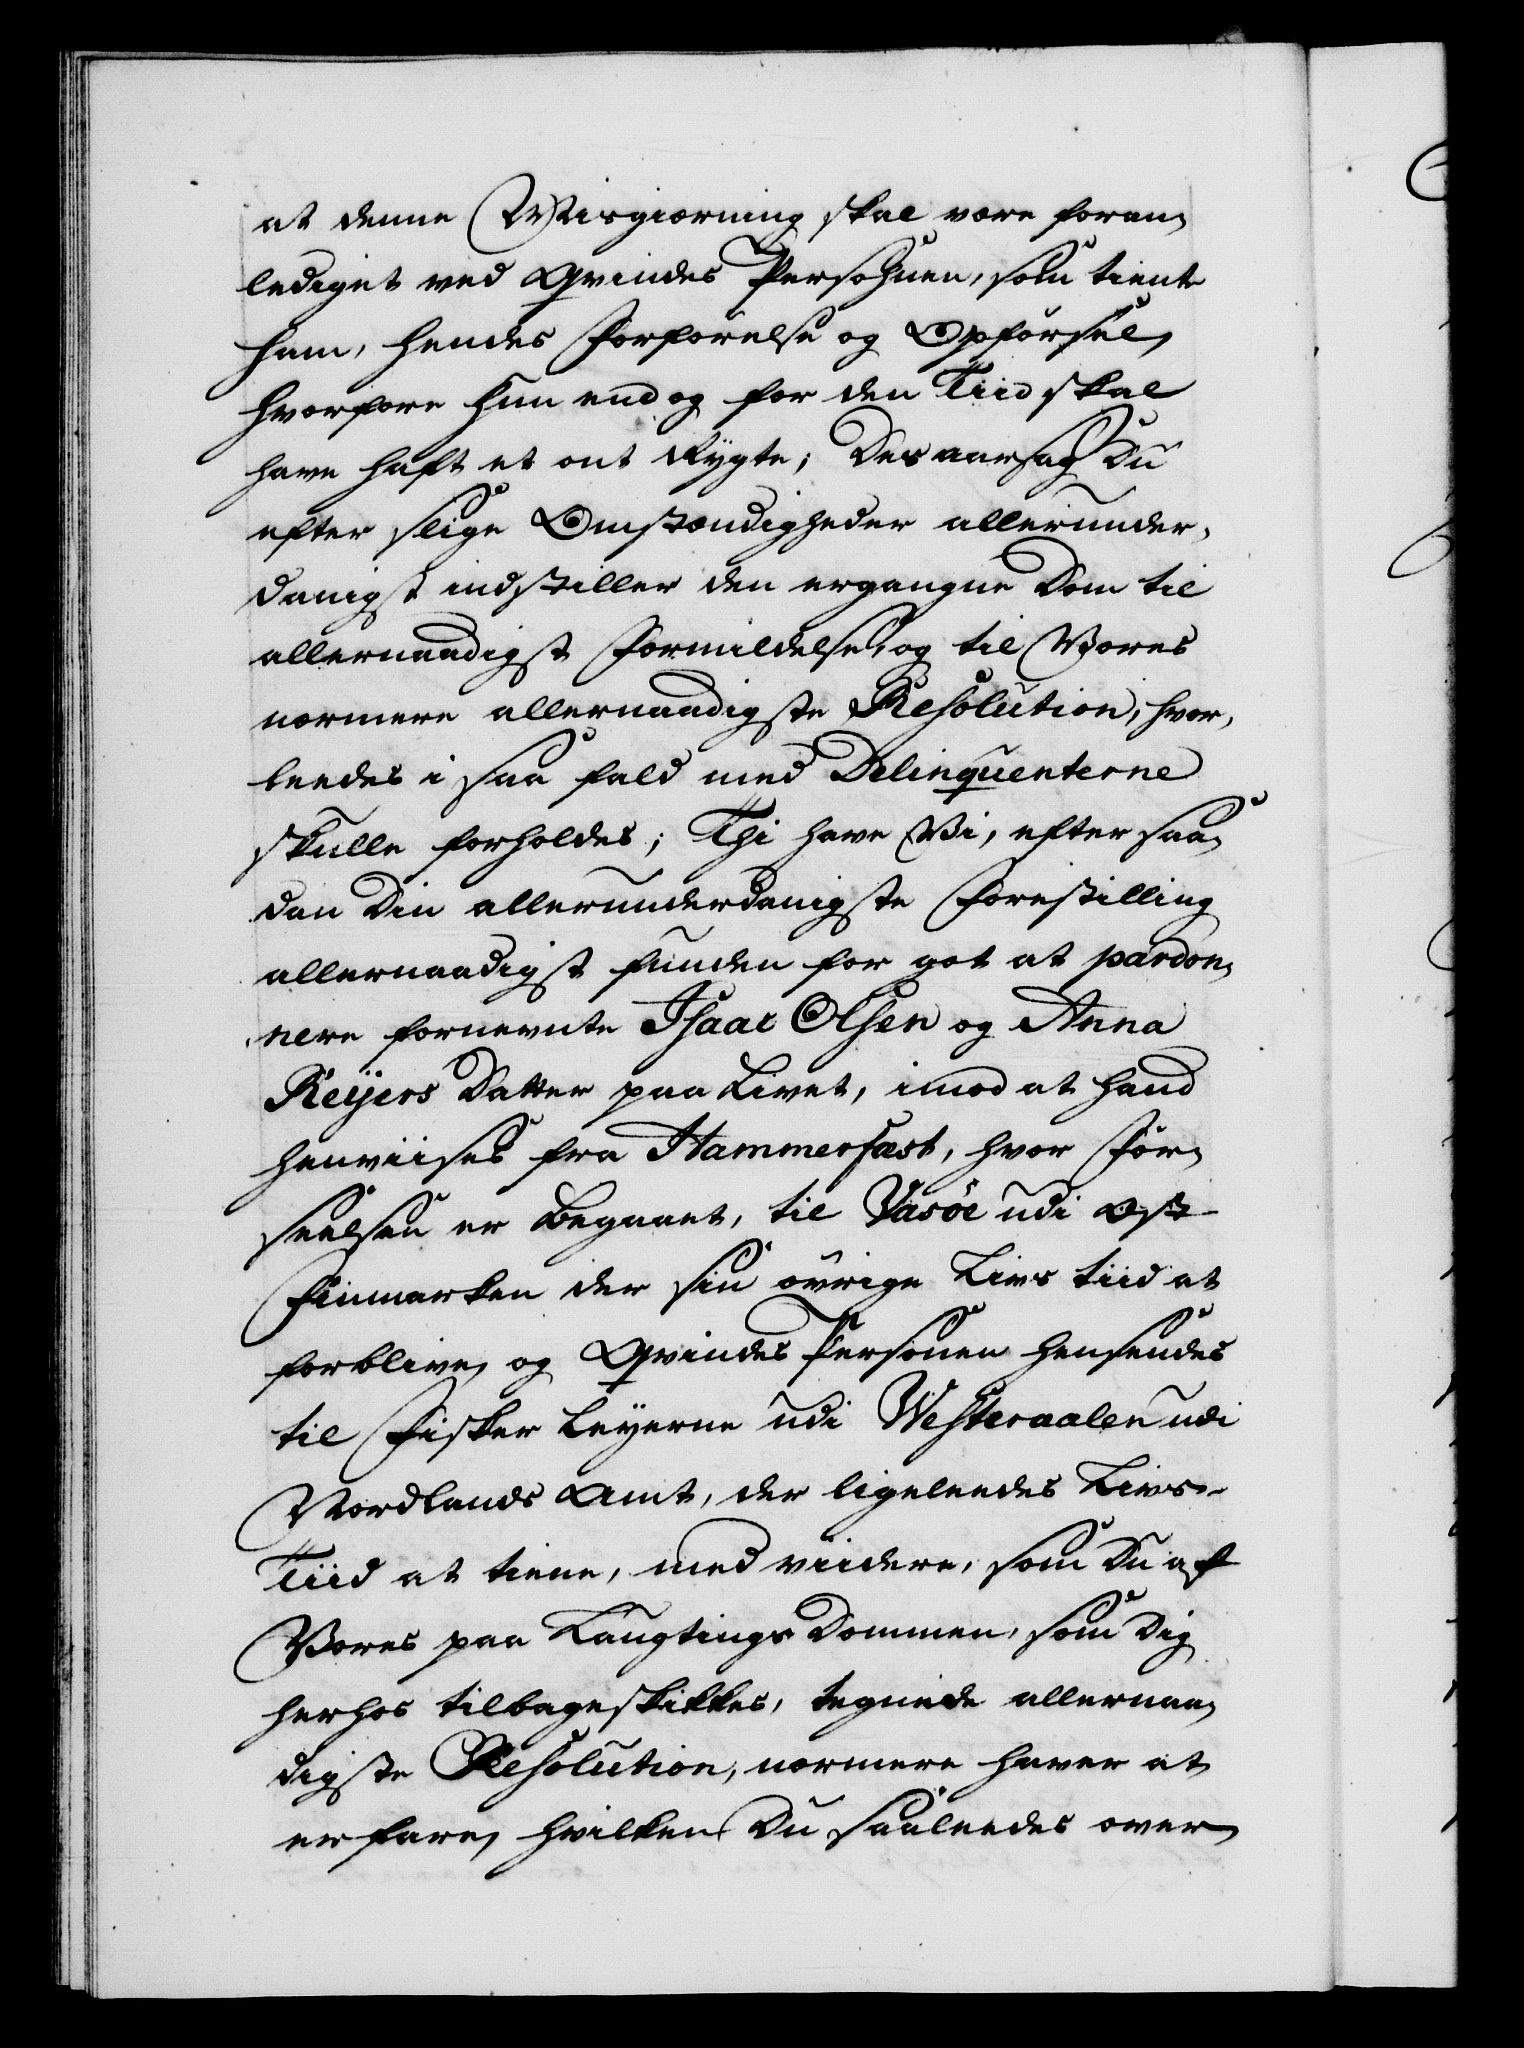 at denne Misgiærning skal være foran,
lediget ved Qvindes Persohnen, som tiente
ham, hendes Forførelse og Opførsel,
hvorfore hun endog for den Tiid skal
have haft et ont Rygte; Des aarsag Du
efter slige Omstændigheder allerunder,
danigst indstiller den ergangne Dom til
allernaadigst Formildelse, og til Vores
nærmere allernaadigste Resolution, hvor,
leedes i saa fald med Delinquenterne
skulle forholdes; Thi have Vi, efter saa,
dan Din allerunderdanigste Forestilling
allernaadigst funden for got at pardon,
nere fornevnte Isaac Olsen og Anna
Reijers Datter paa Livet, imod at hand
henviises fra Hammerfæst, hvor For,
seelsen er begaaet, til Vasöe udi Øst
Finmarken der sin øvrige Livs tiid at
forblive, og Qvindes Personen hensendes
til Fisker Leyerne udi Westeraalen udi
Nordlands Amt, der ligeleedes Livs-
Tiid at tiene, med viidere, som Du af
Vores paa Laugtings Dommen, som Dig
herhos tilbageskikkes, tegnede allernaa,
digste Resolution, nærmere haver at
erfare, hvilken Du saaleedes over,